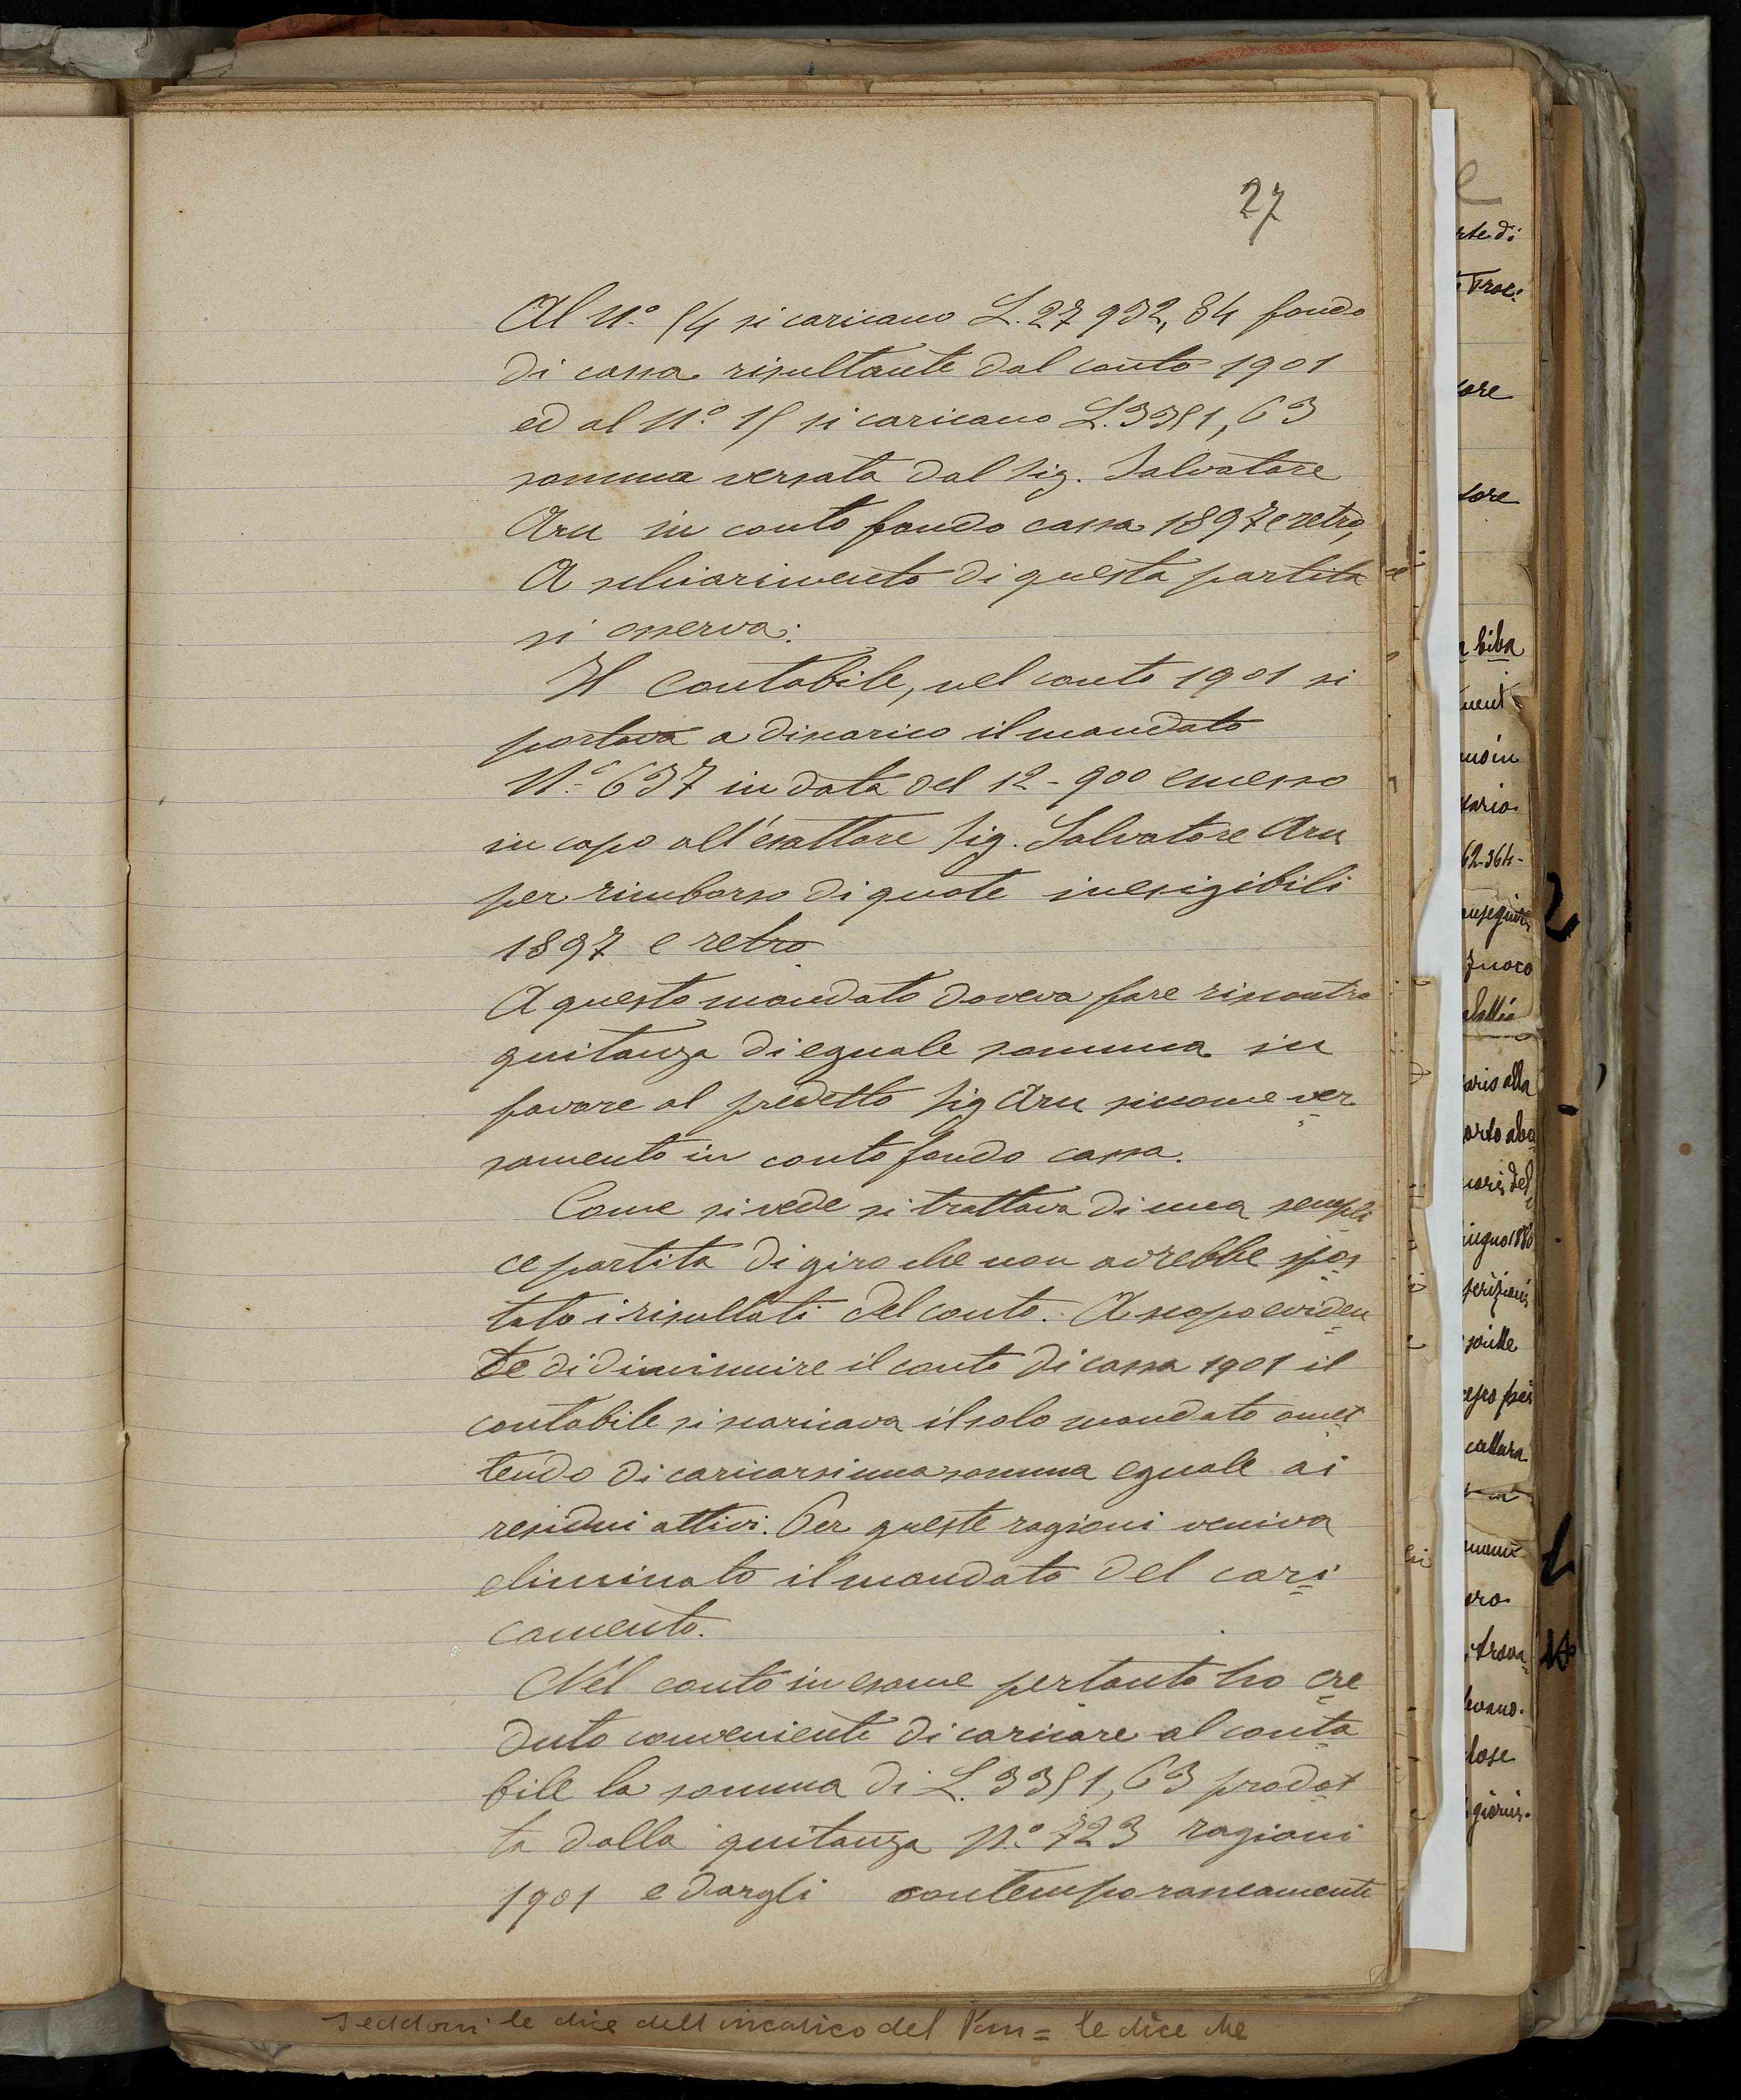 27
Al N.° 54 si caricano L. 27 932,84 fondo
di cassa risultante dal conto 1901
ed al N.° 15 si caricano L. 3351,63
somma versata dal Sig. Salvatore
Aru in conto fondo cassa 1897 e retro,
A schiarimento di questa partita
si osserva:
Il Contabile, nel conto 1901 si
portava a discarico il mandato
N.° 637 in data del 12-900 emesso
in capo all'esattore Sig. Salvatore Aru
per rimborso di quote inesigibili
1897 e retro.
A questo mandato doveva fare riscontro
quitanza di eguale somma in
favore al predetto Sig Aru siccome ver
samento in conto fondo cassa.
Come si vede si trattava di una sempli
ce partita di giro che non avrebbe spos
tato i risultati del conto. A scopo eviden
te di diminuire il conto di cassa 1901 il
contabile si scaricava il solo mandato omet
tendo di caricarsi una somma eguale ai
residui attivi. Per queste ragioni veniva
eliminato il mandato del cari
camento.
Nel conto in esame pertanto ho cre
duto conveniente di caricare al conta
bile la somma di L. 3351,63 prodot
ta dalla quitanza N.° 723 ragioni
1901 e dargli contemporaneamente
le dice dell'incarico del = le dice che
rte di
tore
tore
ario alla
giugno 1880